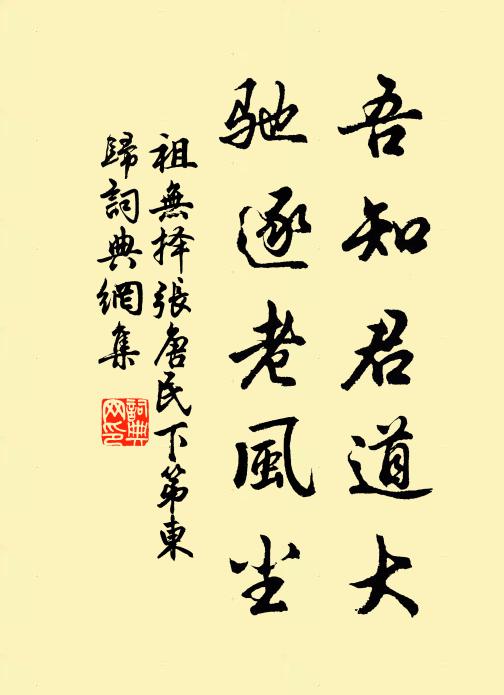 吾知君道大
驰逐老風尘
祖無择張唐民下第東
歸詞典網集
詞典
网印